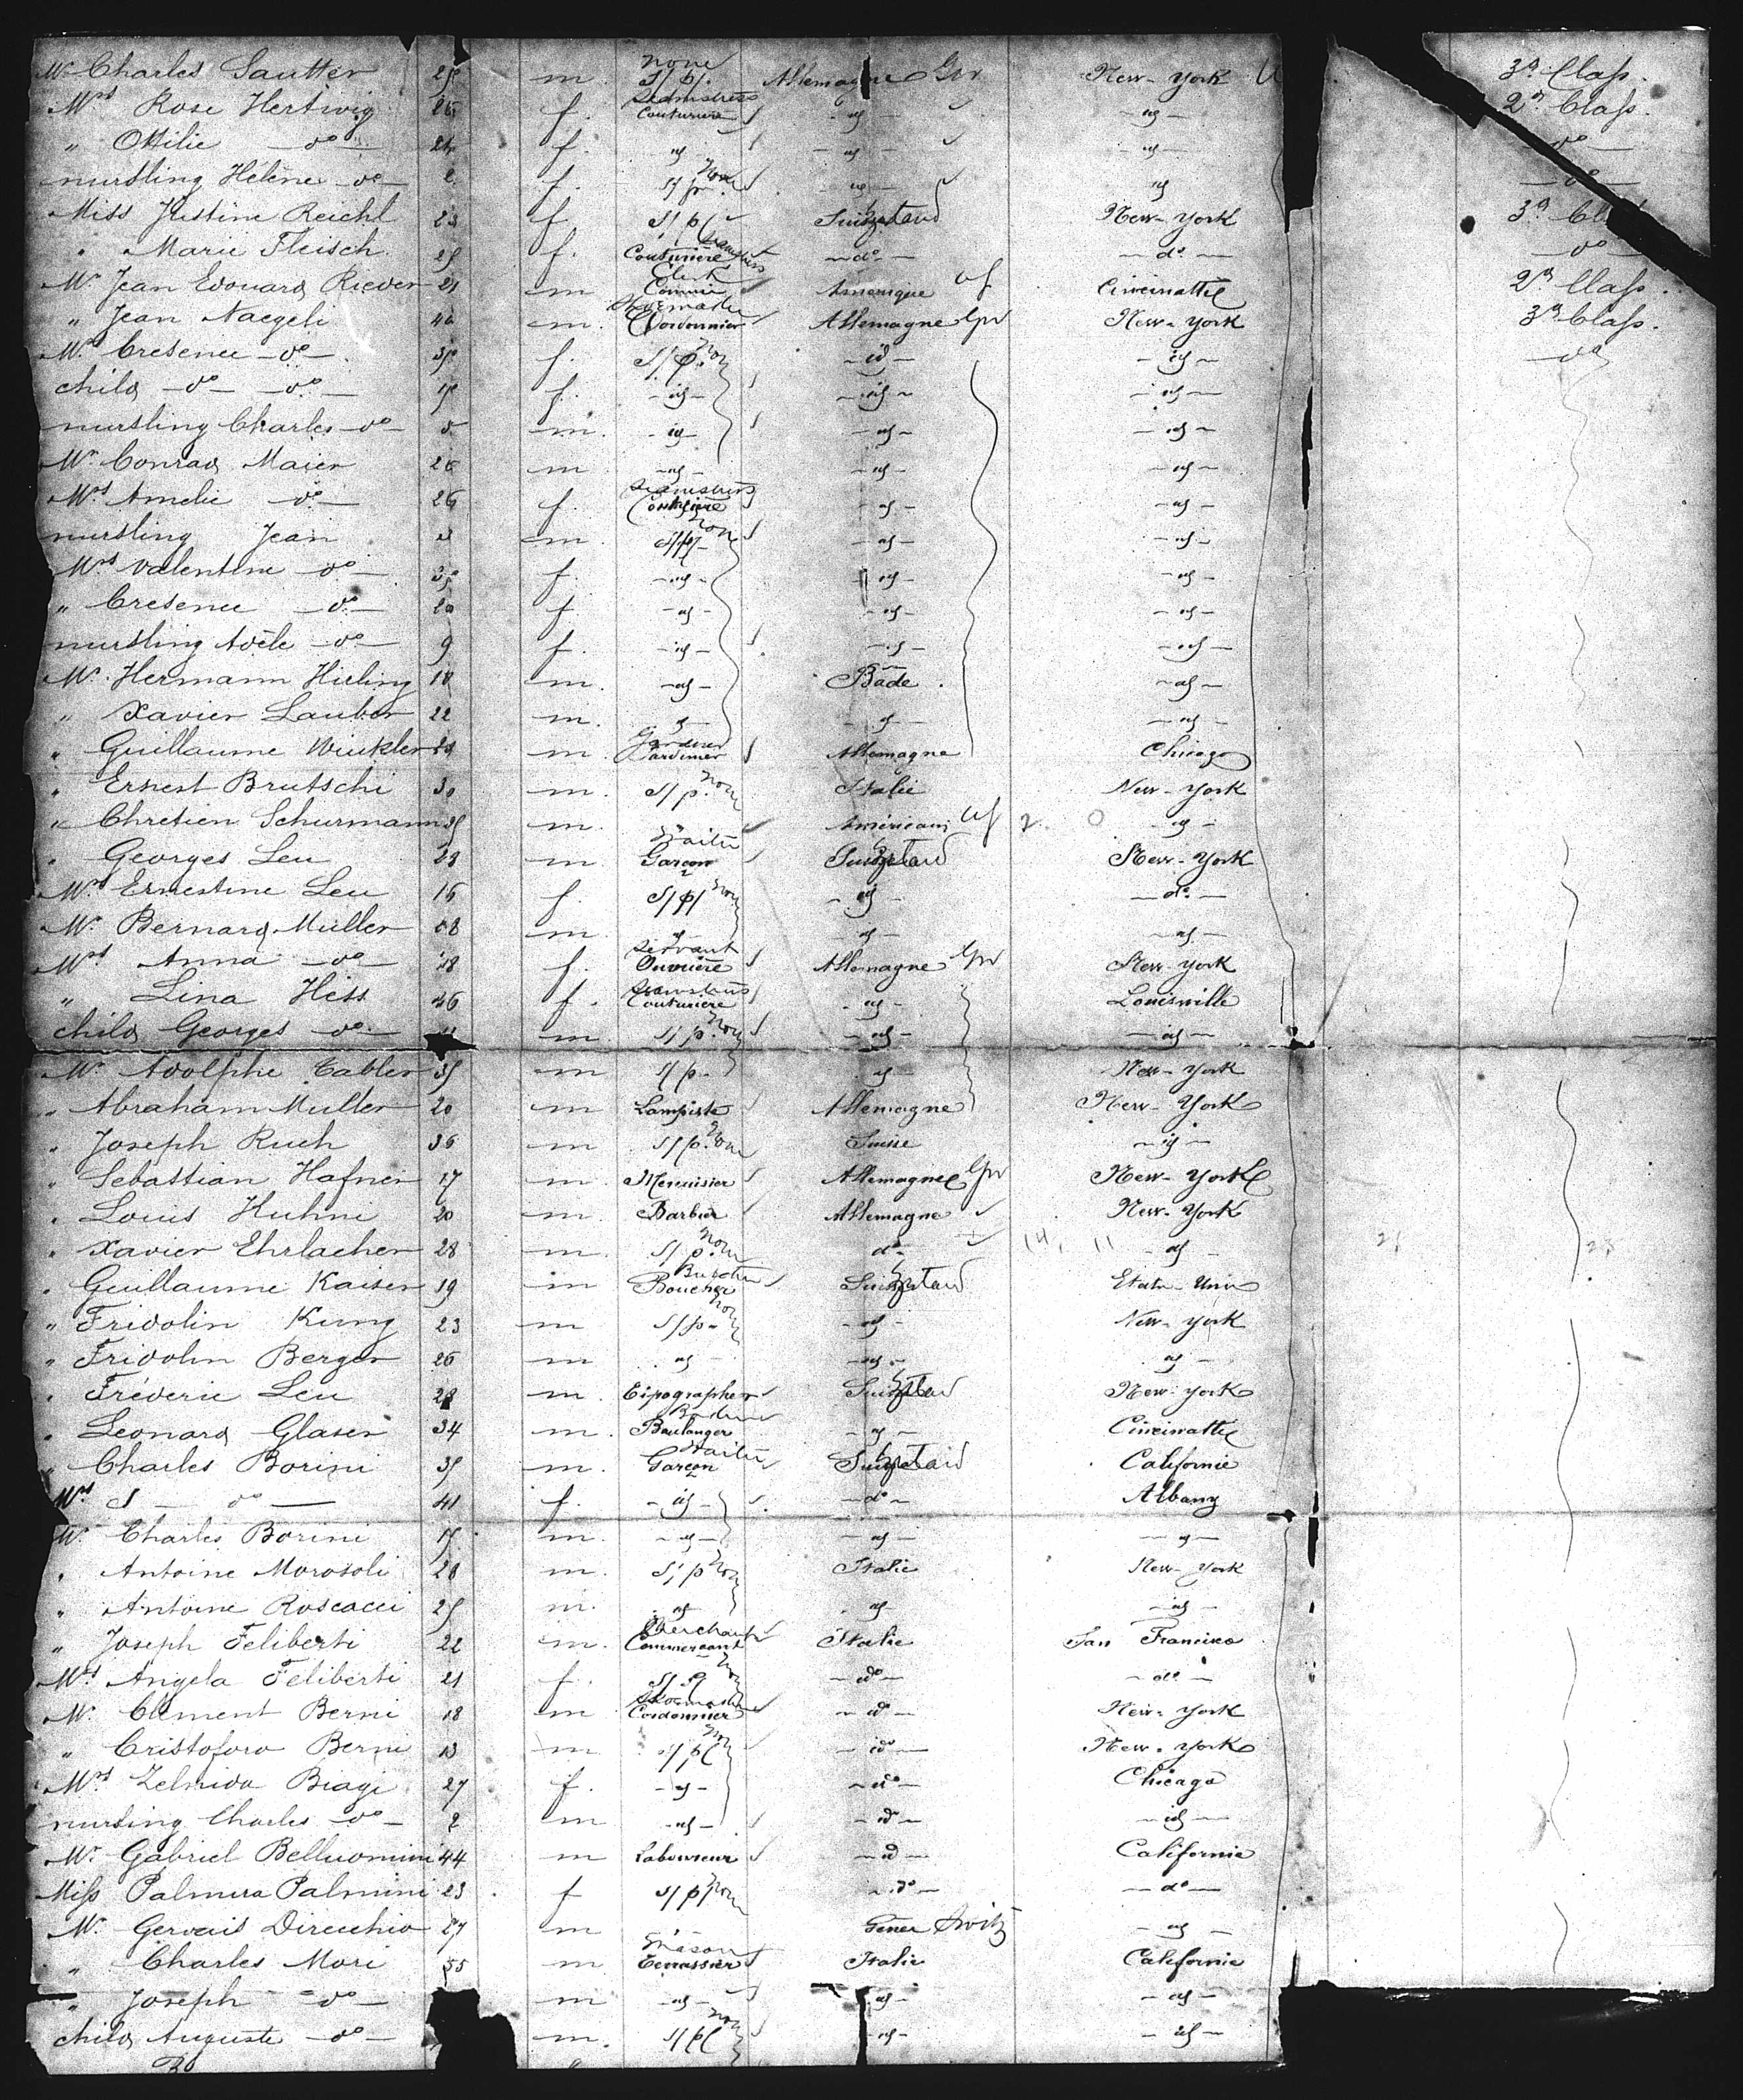 Mr Charles Sautter 25 m. none s/p. Allemagne Ger New-York 3d Class.
Mrs Rose Hertwig 26 f. Seamstress Couturière - id - - id - 2d Class.
" Ottilie - do - 24 f. id - id - - id - do
nursling Hélène - do - 2 f. s/p. none - id - id - do -
Miss Justine Reichl 23 f s/p Suisse Switzerland New-York 3d Class
" Marie Fleisch 25 f. Couturière Seamstress - do - - do - - do -
Mr Jean Edouard Rieder 21 m Clerk Commis Amerique US Cincinatti 2d Class.
" Jean Naegeli 40 m. Shoemaker Cordonnier Allemagne Ger New-York 3d Class.
Mrs Cresence - do - 35 f. s/p. non - id - - id - - do
child - do - - do - f. - id - - id - - id -
nursling Charles - do - m. - id - - id - - id -
Mr Conrad Maier 26 m - id - - id - - id -
Mrs Amelie - do - 26 f. Seamstress Couturière - id - - id -
nursling Jean 3 m s/p - non - id - - id -
Mrs Valentine - do - 35 f. - id - - id - - id -
" Cresence - do - 20 f. - id - - id - - id -
nursling Adèle - do - 9 f. - id - - id - - id -
Mr. Hermann Hirling 18 m. - id - Bade. - id -
" Xavier Lauber 22 m. id - - id - - id -
" Guillaume Winkler m Gardener Jardinier Allemagne Chicago
" Ernest Brutschi 30 m. s/p. non Italie New-York
" Chretien Schurmann 35 m. Américain US - id -
" Georges Leu 23 m. Waiter Garçon Suisse New-York
Mrs Ernestine Leu 16 f. s/p non - id - - do -
Mr. Bernard Muller 58 m id - id - - id -
Mrs Anna - do - 28 f. Servant Ouvrière Allemagne Ger New-York
" Lina Hess 46 f. Seamstress Couturière - id - Louisville
child Georges - do - m s/p. non - id - - id -
Mr Adolphe Tabler 35 m s/p - id - New-York
" Abraham Muller 20 m Lampiste Allemagne New-York
" Joseph Ruch 36 m s/p. non Suisse - id -
" Sebastian Hafner 17 m. Menuisier Allemagne Ger New-York
" Louis Kuhni 20 m. Barbier Allemagne New-York
" Xavier Ehrlacher 28 m. s/p. non do - id -
" Guillaume Kaiser 19 m Butcher Boucher Suisse Etats-Unis
" Fridolin Kung 23 m s/p - non - id - New-York
" Fridolin Berger 26 m id - - id - id -
" Fréderic Leu 28 m. Tipographer Suisse New-York
" Leonard Glaser 34 m. Boulanger - id - Cincinatti
" Charles Borini 35 m. Waiter Garçon Suisse Californie
Mrs S - do - 41 f. - id - - do - Albany
Mr. Charles Borini m. - id - - id - - id -
" Antoine Morosoli 28 m. s/p non Italie New-York
" Antoine Roscacci 25 m. id - id - - id -
" Joseph Feliberti 22 m. Merchant Commerçant Italie San Francisco
Mrs Angela Feliberti 21 f. s/p non - do - - do -
Mr. Clement Berni 18 m Shoemaker Cordonnier - do - New-York
" Cristoforo Berni 13 m s/p non - do - New-York
Mrs Zelmida Biagi 27 f. - id - - do - Chicago
nursing Charles - do - 2 m - id - - do - - id -
Mr. Gabriel Belluomini 44 m Laboureur - id - Californie
Miss Palmira Palmini 23 f s/p non - do - - do -
Mr. Gervais 27 m - - Switz - id -
" Charles Mori 55 m Mason Terrassier Italie Californie
" Joseph - do - m - id - id - - id -
child Auguste - do - m. s/p non - id - - id -